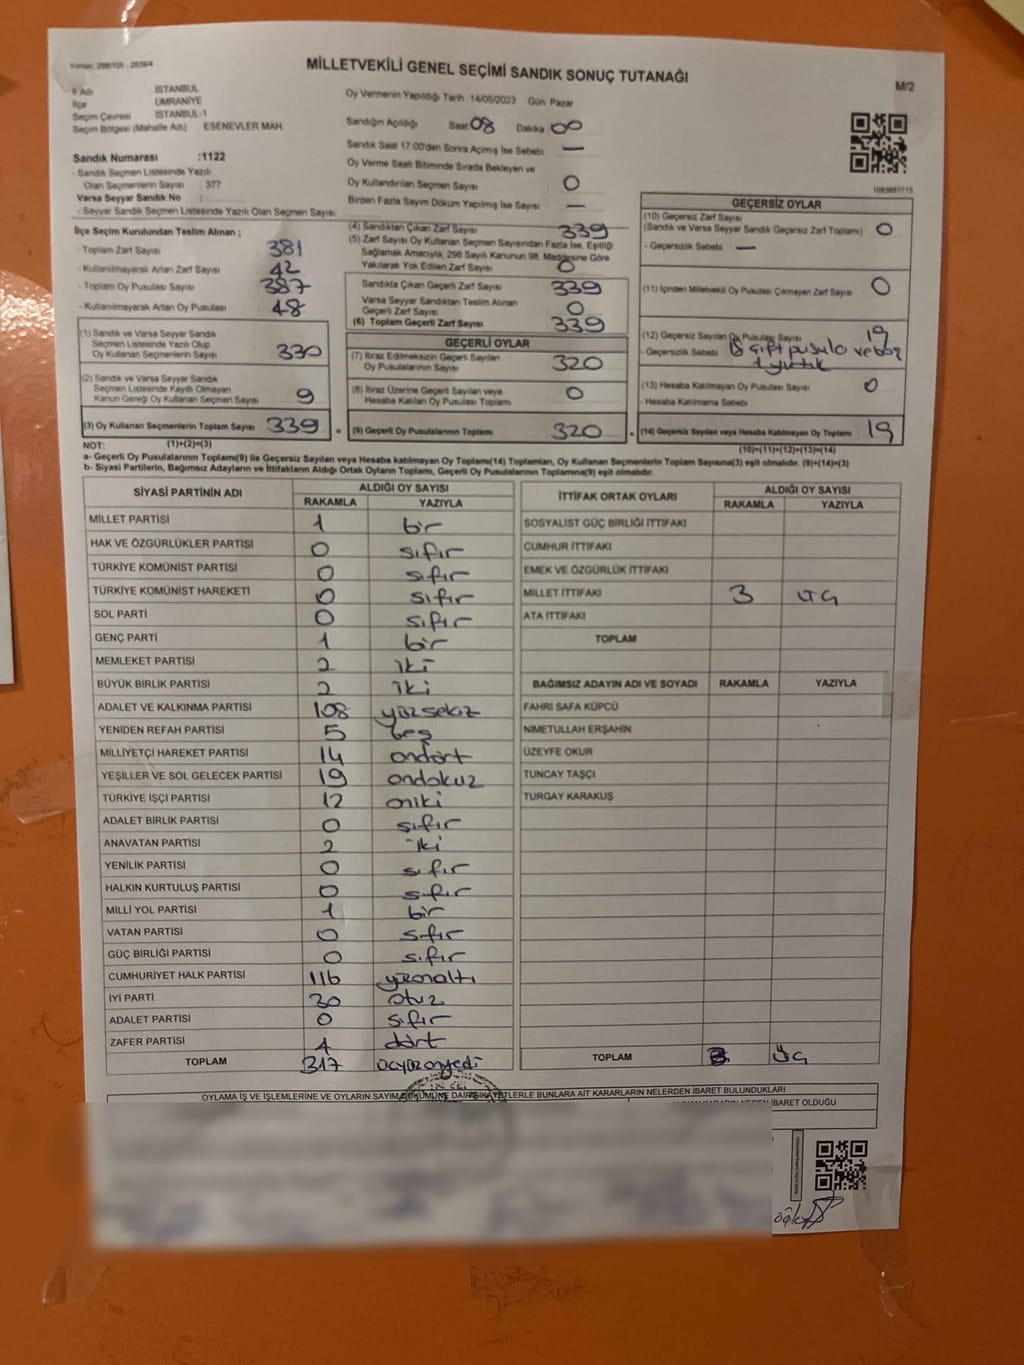 Kanun: 298/105 - 2839/4
MİLLETVEKİLİ GENEL SEÇİMİ SANDIK SONUÇ TUTANAĞI
M/2
İl Adı İSTANBUL
İlçe ÜMRANİYE
Seçim Çevresi İSTANBUL-1
Seçim Bölgesi (Mahalle Adı) ESENEVLER MAH.
Sandık Numarası :1122
- Sandık Seçmen Listesinde Yazılı
Olan Seçmenlerin Sayısı : 377
Varsa Seyyar Sandık No :
- Seyyar Sandık Seçmen Listesinde Yazılı Olan Seçmen Sayısı:
Oy Vermenin Yapıldığı Tarih 14/05/2023 Gün Pazar
Sandığın Açıldığı Saat 08 Dakika 00
Sandık Saat 17.00'den Sonra Açılmış İse Sebebi —
Oy Verme Saati Bitiminde Sırada Bekleyen ve
Oy Kullandırılan Seçmen Sayısı 0
Birden Fazla Sayım Döküm Yapılmış İse Sayısı —
1083687713
İlçe Seçim Kurulundan Teslim Alınan ;
- Toplam Zarf Sayısı 381
- Kullanılmayarak Artan Zarf Sayısı 42
- Toplam Oy Pusulası Sayısı 387
- Kullanılmayarak Artan Oy Pusulası 48
(1) Sandık ve Varsa Seyyar Sandık
Seçmen Listesinde Yazılı Olup
Oy Kullanan Seçmenlerin Sayısı 330
(2) Sandık ve Varsa Seyyar Sandık
Seçmen Listesinde Kayıtlı Olmayan
Kanun Gereği Oy Kullanan Seçmen Sayısı 9
(3) Oy Kullanan Seçmenlerin Toplam Sayısı 339
(1)+(2)=(3)
(4) Sandıktan Çıkan Zarf Sayısı 339
(5) Zarf Sayısı Oy Kullanan Seçmen Sayısından Fazla İse, Eşitliği
Sağlamak Amacıyla, 298 Sayılı Kanunun 98. Maddesine Göre
Yakılarak Yok Edilen Zarf Sayısı 0
Sandıkta Çıkan Geçerli Zarf Sayısı 339
Varsa Seyyar Sandıktan Teslim Alınan
Geçerli Zarf Sayısı 0
(6) Toplam Geçerli Zarf Sayısı 339
GEÇERLİ OYLAR
(7) İtiraz Edilmeksizin Geçerli Sayılan
Oy Pusulalarının Sayısı 320
(8) İtiraz Üzerine Geçerli Sayılan veya
Hesaba Katılan Oy Pusulası Toplamı 0
= (9) Geçerli Oy Pusulalarının Toplamı 320
GEÇERSİZ OYLAR
(10) Geçersiz Zarf Sayısı
(Sandık ve Varsa Seyyar Sandık Geçersiz Zarf Toplamı) 0
- Geçersizlik Sebebi : —
(11) İçinden Milletvekili Oy Pusulası Çıkmayan Zarf Sayısı 0
(12) Geçersiz Sayılan Oy Pusulası Sayısı 19
- Geçersizlik Sebebi çift pusula ve boş
1 yırtık
(13) Hesaba Katılmayan Oy Pusulası Sayısı 0
- Hesaba Katılmama Sebebi :
+ (14) Geçersiz Sayılan veya Hesaba Katılmayan Oy Toplamı 19
(10)+(11)+(12)+(13)=(14)
NOT:
a- Geçerli Oy Pusulalarının Toplamı(9) ile Geçersiz Sayılan veya Hesaba katılmayan Oy Toplamı(14) Toplamları, Oy Kullanan Seçmenlerin Toplam Sayısına(3) eşit olmalıdır. (9)+(14)=(3)
b- Siyasi Partilerin, Bağımsız Adayların ve İttifakların Aldığı Ortak Oyların Toplamı, Geçerli Oy Pusulalarının Toplamına(9) eşit olmalıdır.
SİYASİ PARTİNİN ADI ALDIĞI OY SAYISI
RAKAMLA YAZIYLA
MİLLET PARTİSİ 1 bir
HAK VE ÖZGÜRLÜKLER PARTİSİ 0 sıfır
TÜRKİYE KOMÜNİST PARTİSİ 0 sıfır
TÜRKİYE KOMÜNİST HAREKETİ 0 sıfır
SOL PARTİ 0 sıfır
GENÇ PARTİ 1 bir
MEMLEKET PARTİSİ 2 iki
BÜYÜK BİRLİK PARTİSİ 2 iki
ADALET VE KALKINMA PARTİSİ 108 yüzsekiz
YENİDEN REFAH PARTİSİ 5 beş
MİLLİYETÇİ HAREKET PARTİSİ 14 ondört
YEŞİLLER VE SOL GELECEK PARTİSİ 19 ondokuz
TÜRKİYE İŞÇİ PARTİSİ 12 oniki
ADALET BİRLİK PARTİSİ 0 sıfır
ANAVATAN PARTİSİ 2 iki
YENİLİK PARTİSİ 0 sıfır
HALKIN KURTULUŞ PARTİSİ 0 sıfır
MİLLİ YOL PARTİSİ 1 bir
VATAN PARTİSİ 0 sıfır
GÜÇ BİRLİĞİ PARTİSİ 0 sıfır
CUMHURİYET HALK PARTİSİ 116 yüzonaltı
İYİ PARTİ 30 otuz
ADALET PARTİSİ 0 sıfır
ZAFER PARTİSİ 4 dört
TOPLAM 317 üçyüzonyedi
İTTİFAK ORTAK OYLARI ALDIĞI OY SAYISI
RAKAMLA YAZIYLA
SOSYALİST GÜÇ BİRLİĞİ İTTİFAKI
CUMHUR İTTİFAKI
EMEK VE ÖZGÜRLÜK İTTİFAKI
MİLLET İTTİFAKI 3 üç
ATA İTTİFAKI
TOPLAM
BAĞIMSIZ ADAYIN ADI VE SOYADI RAKAMLA YAZIYLA
FAHRİ SAFA KÜPCÜ
NİMETULLAH ERŞAHİN
ÜZEYFE OKUR
TUNCAY TAŞÇI
TURGAY KARAKUŞ
TOPLAM 3 üç
OYLAMA İŞ VE İŞLEMLERİNE VE OYLARIN SAYIM DÖKÜMÜNE DAİR ŞİKAYETLERLE BUNLARA AİT KARARLARIN NELERDEN İBARET BULUNDUKLARI
İBARET OLDUĞU